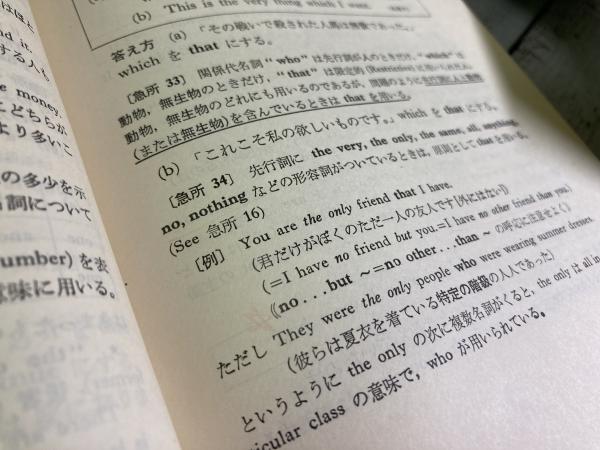 はほと
nd it.
する人も
e money.
こどちらが
より多いこ
の多少を示
詞について
umber) を表
意味に用いる。
(b) This is the very thing which I want.
答え方 (a) 「その戦いで殺された人馬は無数であった。」
which を that にする。
〔急所 33〕 関係代名詞 "who" は先行詞が人のときだけ, "which" は
動物, 無生物のときだけ, "that" は限定的 (Restrictive) に
動物, 無生物のどれにも用いるのであるが, 問題のように先行詞に人と動物
(または無生物)を含んでいるときは that を用いる。
(b) 「これこそ私の欲しいものです。」 which を that にする。
〔急所 34〕 先行詞に the very, the only, the same, all, anything,
no, nothing などの形容詞がついているときは, 原則として that を用いる。
(See 急所 16)
〔例〕 You are the only friend that I have.
(君だけがぼくのただ一人の友人です〔外にはない〕)
(=I have no friend but you.=I have no other friend than you.)
(no...but ~=no other...than ~ の呼応に注意せよ)
ただし They were the only people who were wearing summer dresses.
(彼らは夏衣を着ている特定の階級の人人であった)
というように the only の次に複数名詞がくると, the only は all in
ticular class の意味で, who が用いられている。